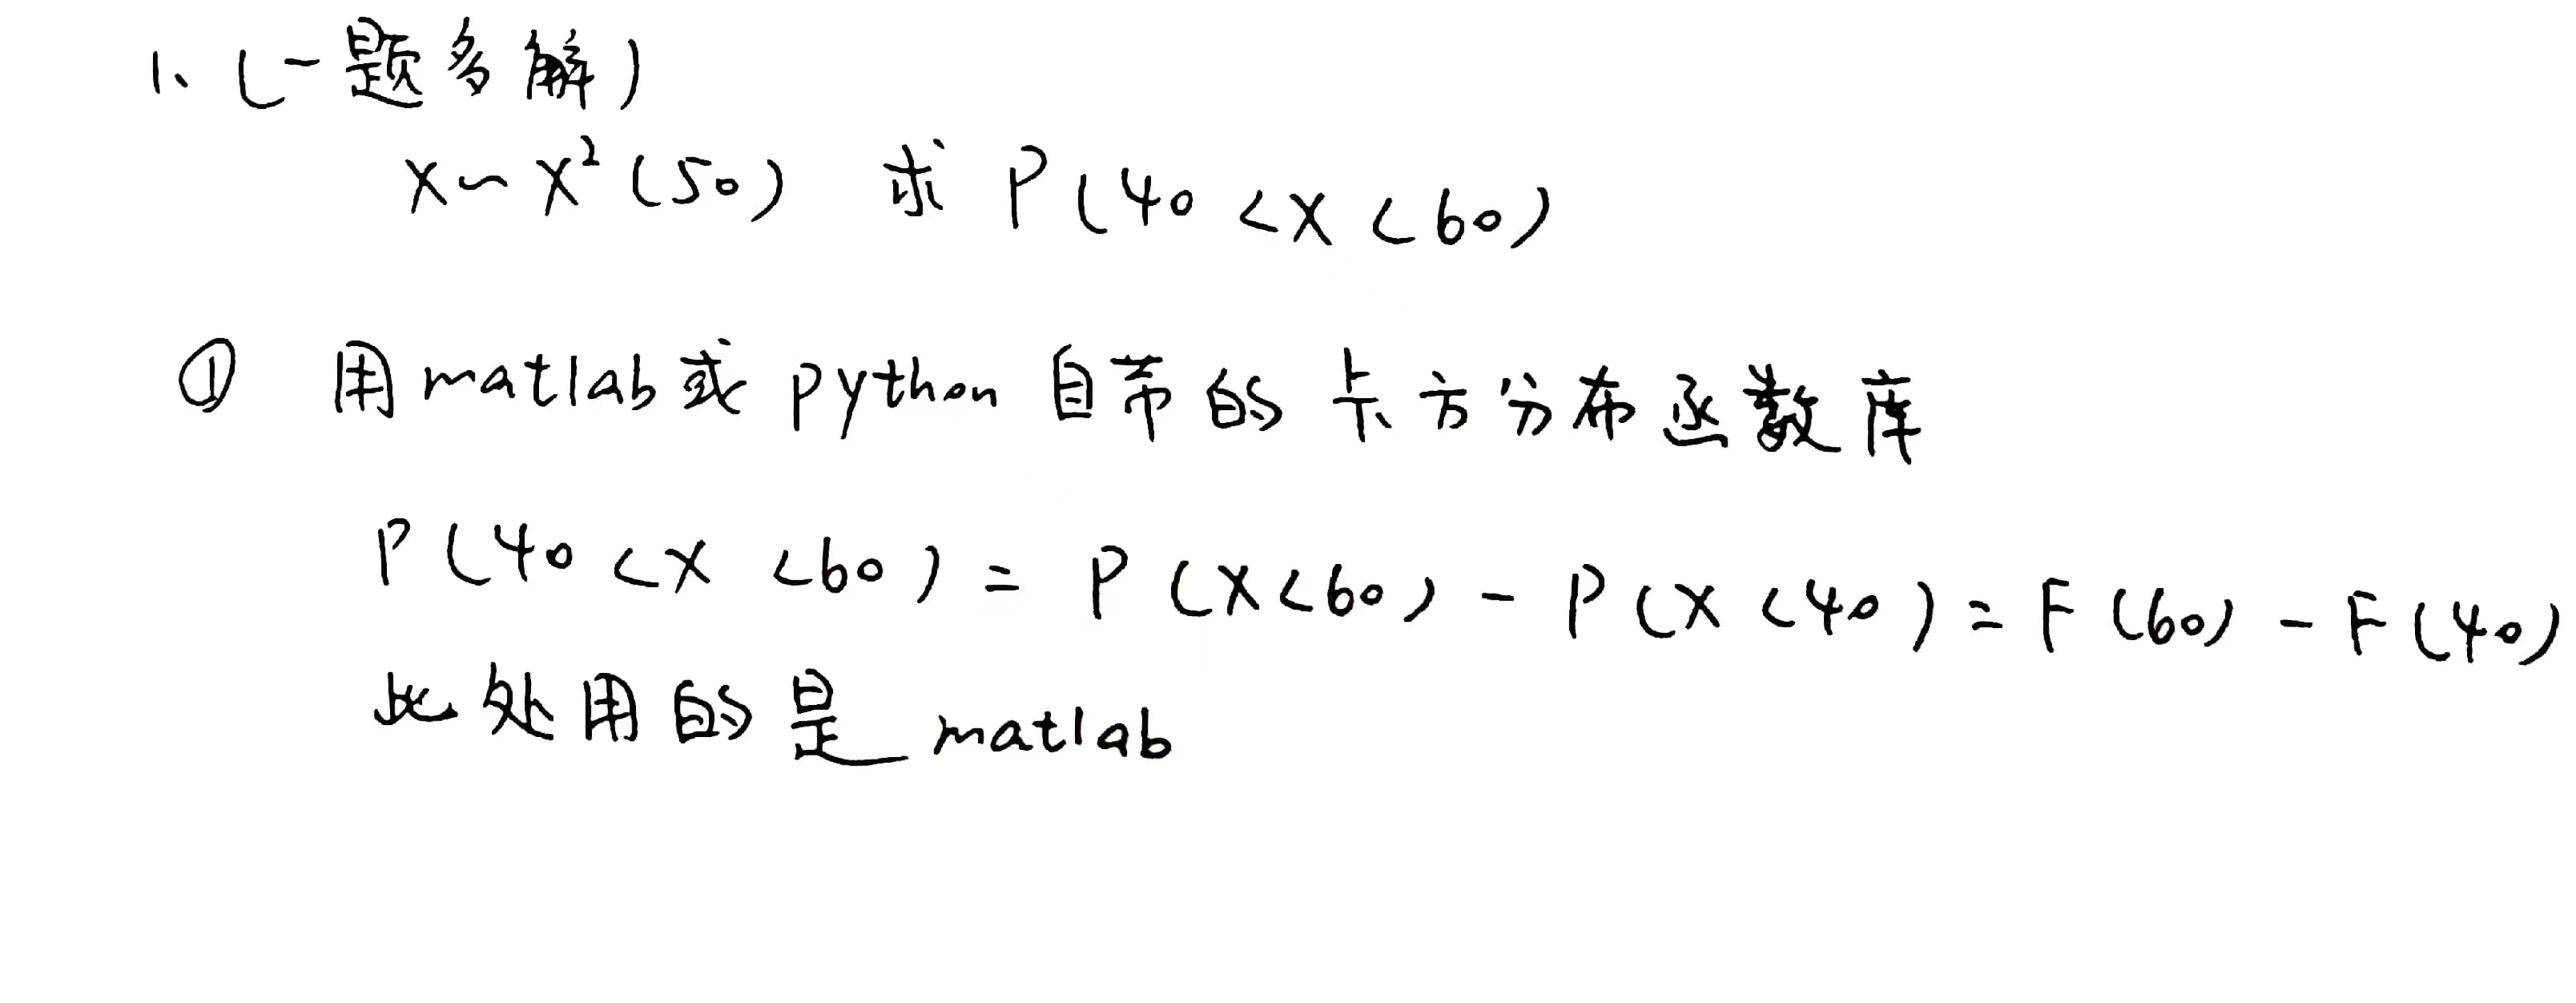 1、(一题多解)
X~X²(50) 求 P(40<X<60)
① 用matlab或python自带的卡方分布函数库
P(40<X<60)=P(X<60)-P(X<40)=F(60)-F(40)
此处用的是matlab